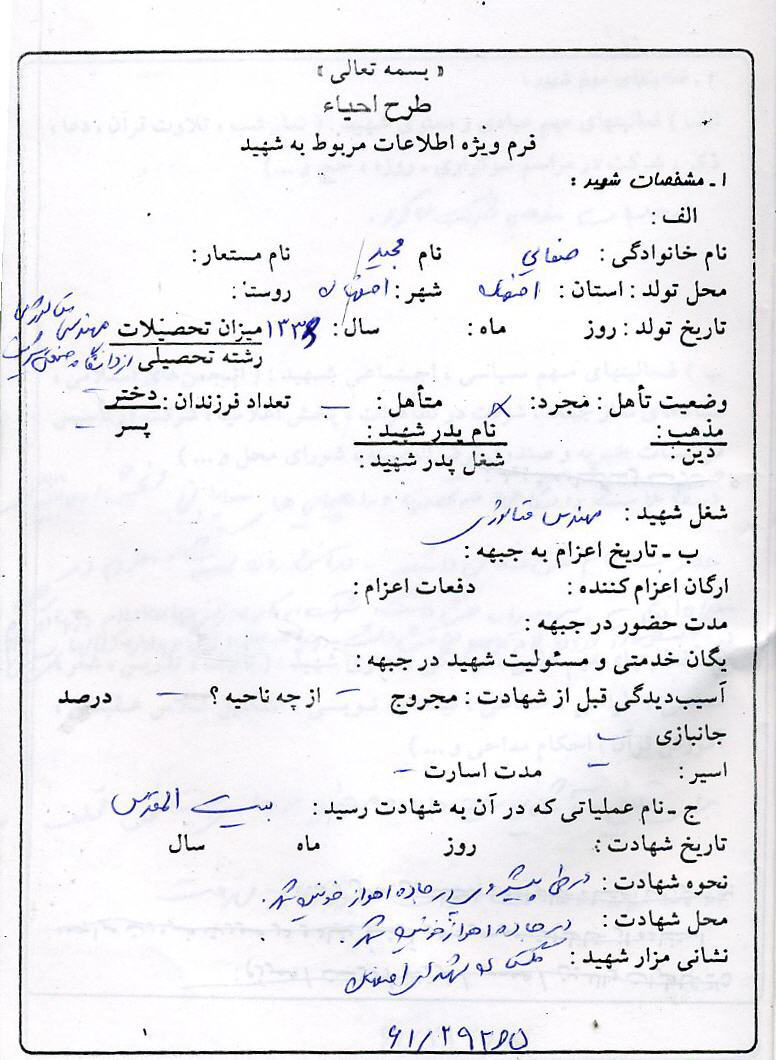 « بسمه تعالی »
طرح احیاء
فرم ویژه اطلاعات مربوط به شهید
۱ ـ مشخصات شهید :
الف :
نام خانوادگی : صفایی نام مجید نام مستعار :
محل تولد : استان : اصفهان شهر : اصفهان روستا :
تاریخ تولد : روز ماه : سال : ۱۳۳۸ میزان تحصیلات مهندس متالورژی
رشته تحصیلی از دانشگاه صنعتی
وضعیت تأهل : مجرد : × متأهل : – تعداد فرزندان : دختر –
مذهب : نام پدر شهید : پسر –
دین : شغل پدر شهید :
شغل شهید : مهندس متالورژی
ب ـ تاریخ اعزام به جبهه :
ارگان اعزام کننده : دفعات اعزام :
مدت حضور در جبهه :
یگان خدمتی و مسئولیت شهید در جبهه :
آسیب‌دیدگی قبل از شهادت : مجروح – از چه ناحیه ؟ – درصد
جانبازی –
اسیر : – مدت اسارت –
ج ـ نام عملیاتی که در آن به شهادت رسید : بیت المقدس
تاریخ شهادت : روز ماه سال
نحوه شهادت : در طی پیشروی در جاده اهواز خرمشهر .
محل شهادت : در جاده اهواز خرمشهر .
نشانی مزار شهید : گلستان شهدای اصفهان
۱